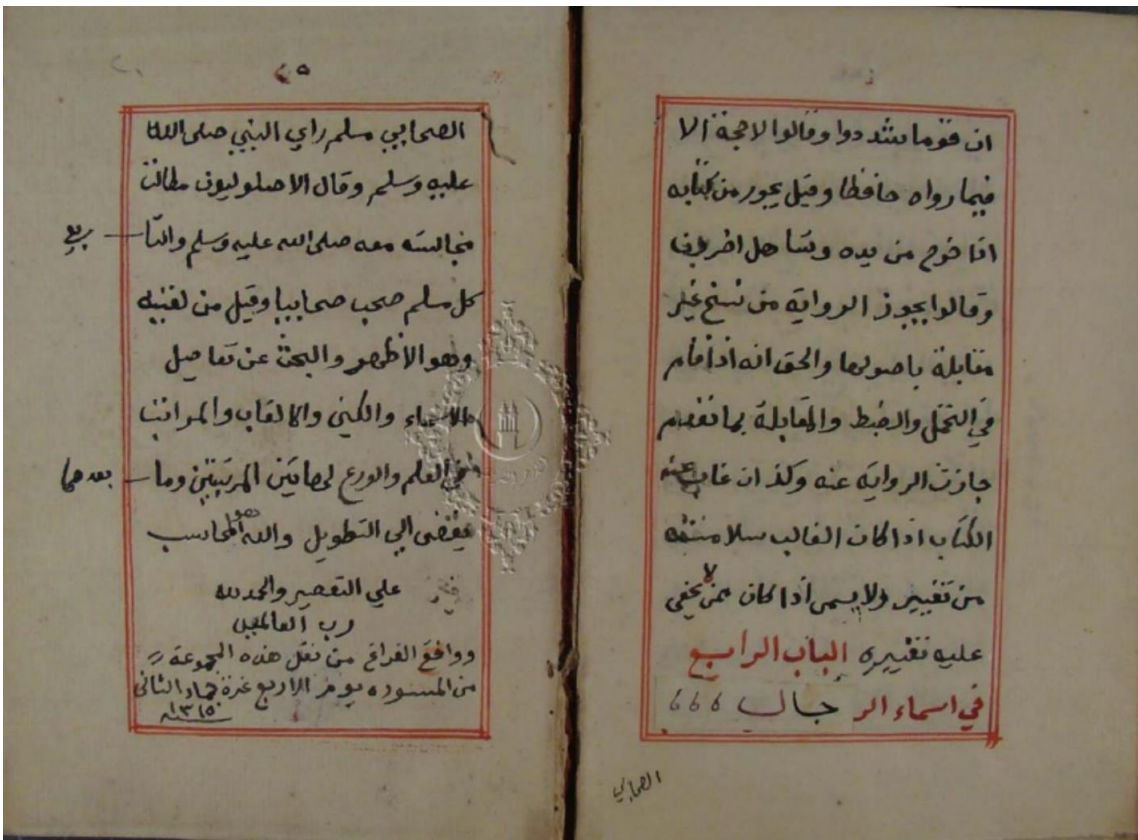 ان قوما شددوا وقالوا لا حجة الا
فيما رواه حافظا وقيل يجوز من كتابه
اذا خرج من يده وتساهل اخرون
وقالوا يجوز الرواية من نسخ غير
مقابلة باصولها والحق انه اذا قام
في التحمل والضبط والمقابلة بما تقدم
جازت الرواية عنه وكذا ان غاب عنه
الكتاب اذا كان الغالب سلامته
من تغيير ولا سيما اذا كان ممن لا يخفى
عليه تغييره الباب الرابع
في اسماء الرجال ٦٦٦
الصحابي
٢٥
الصحابي مسلم راي النبي صلى الله
عليه وسلم وقال الاصوليون من طالت
مجالسته معه صلى الله عليه وسلم والتا بعي
كل مسلم صحب صحابيا وقيل من لقيه
وهو الاظهر والبحث عن تفاصيل
الاسماء والكنى والالقاب والمراتب
في العلم والورع لهاتين المرتبتين وما بعدهما
يفضى الي التطويل والله هو المحاسب
علي التقصير والحمد لله
رب العالمين
ووافق الفراغ من نقل هذه المجموعة
من المسوده يوم الاربع غرة جماد الثاني
سنة ١٣١٥